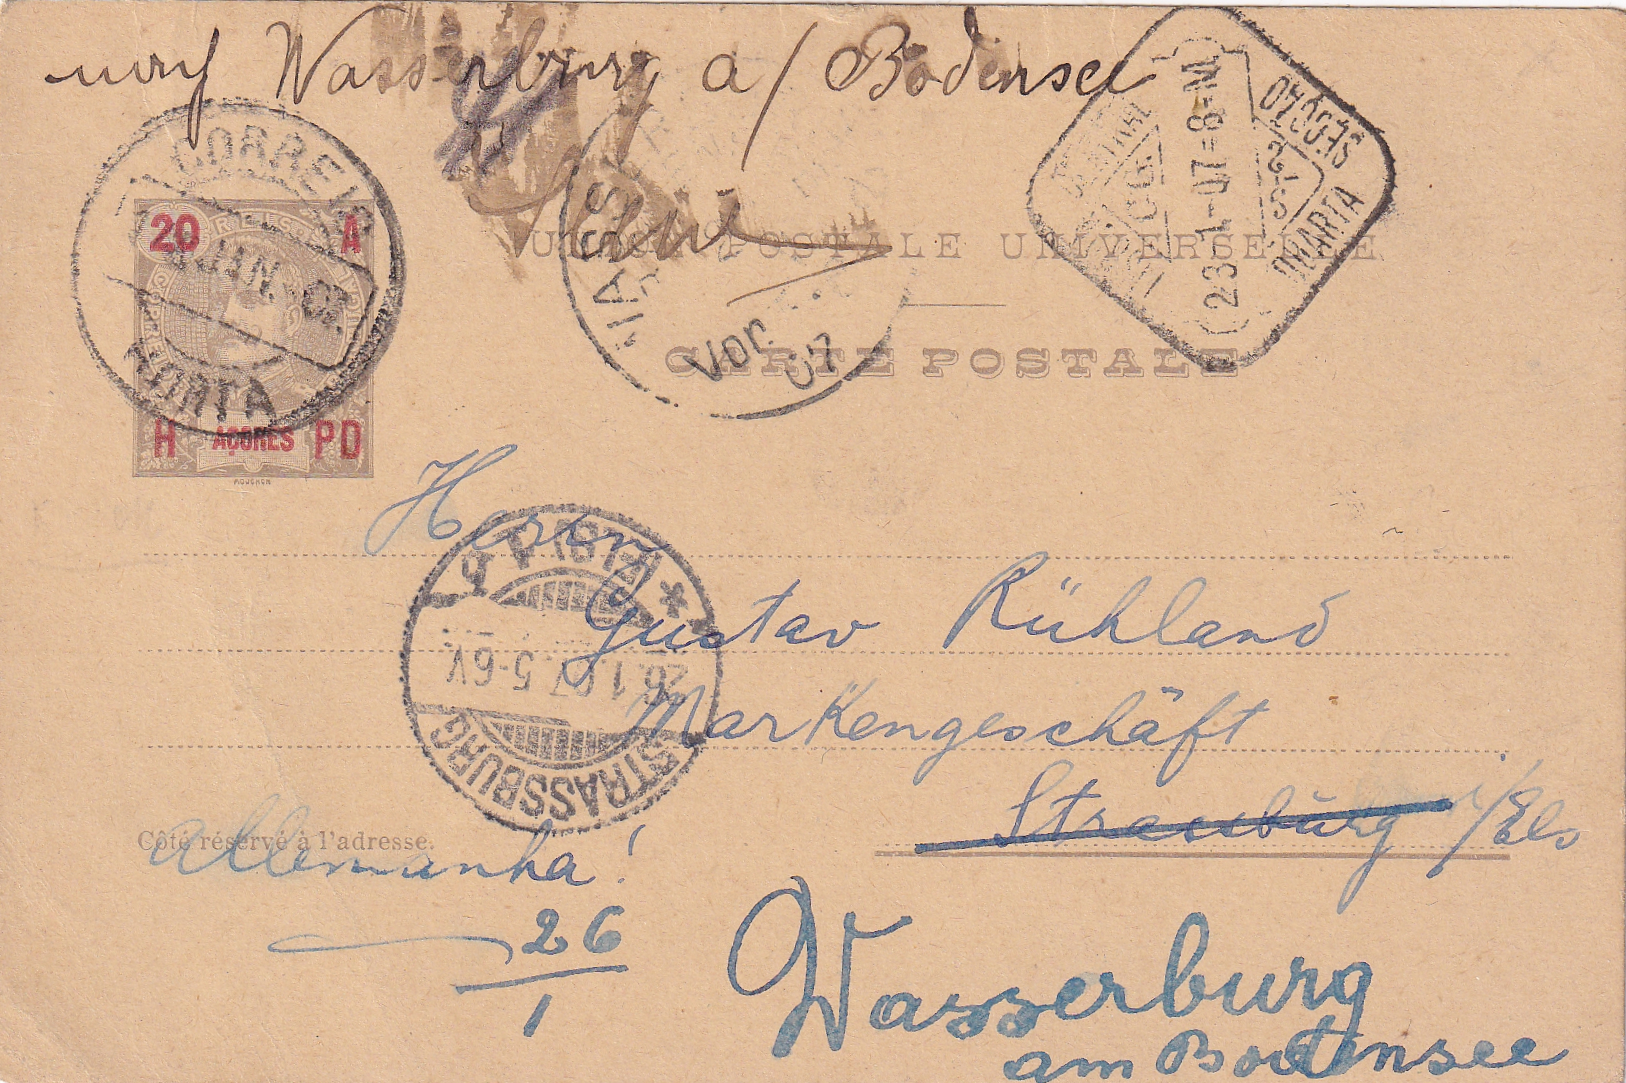 nach Wasserburg a/ Bodensee
CORREIO
HORTA
20 REIS A
H AÇORES PD
MOUCHON
UNION POSTALE UNIVERSELLE
CARTE POSTALE
Vor.
07
CENTRAL
23-1-07-8-M
2ª S
QUARTA
SECÇÃO
Herrn
Gustav Rühland
Markengeschäft
Strassburg i/Els
STRASSBURG (ELS) 1
26.1.07.5-6V.
Côté réservé à l'adresse.
Allemanha!
26
1
Wasserburg
am Bodensee